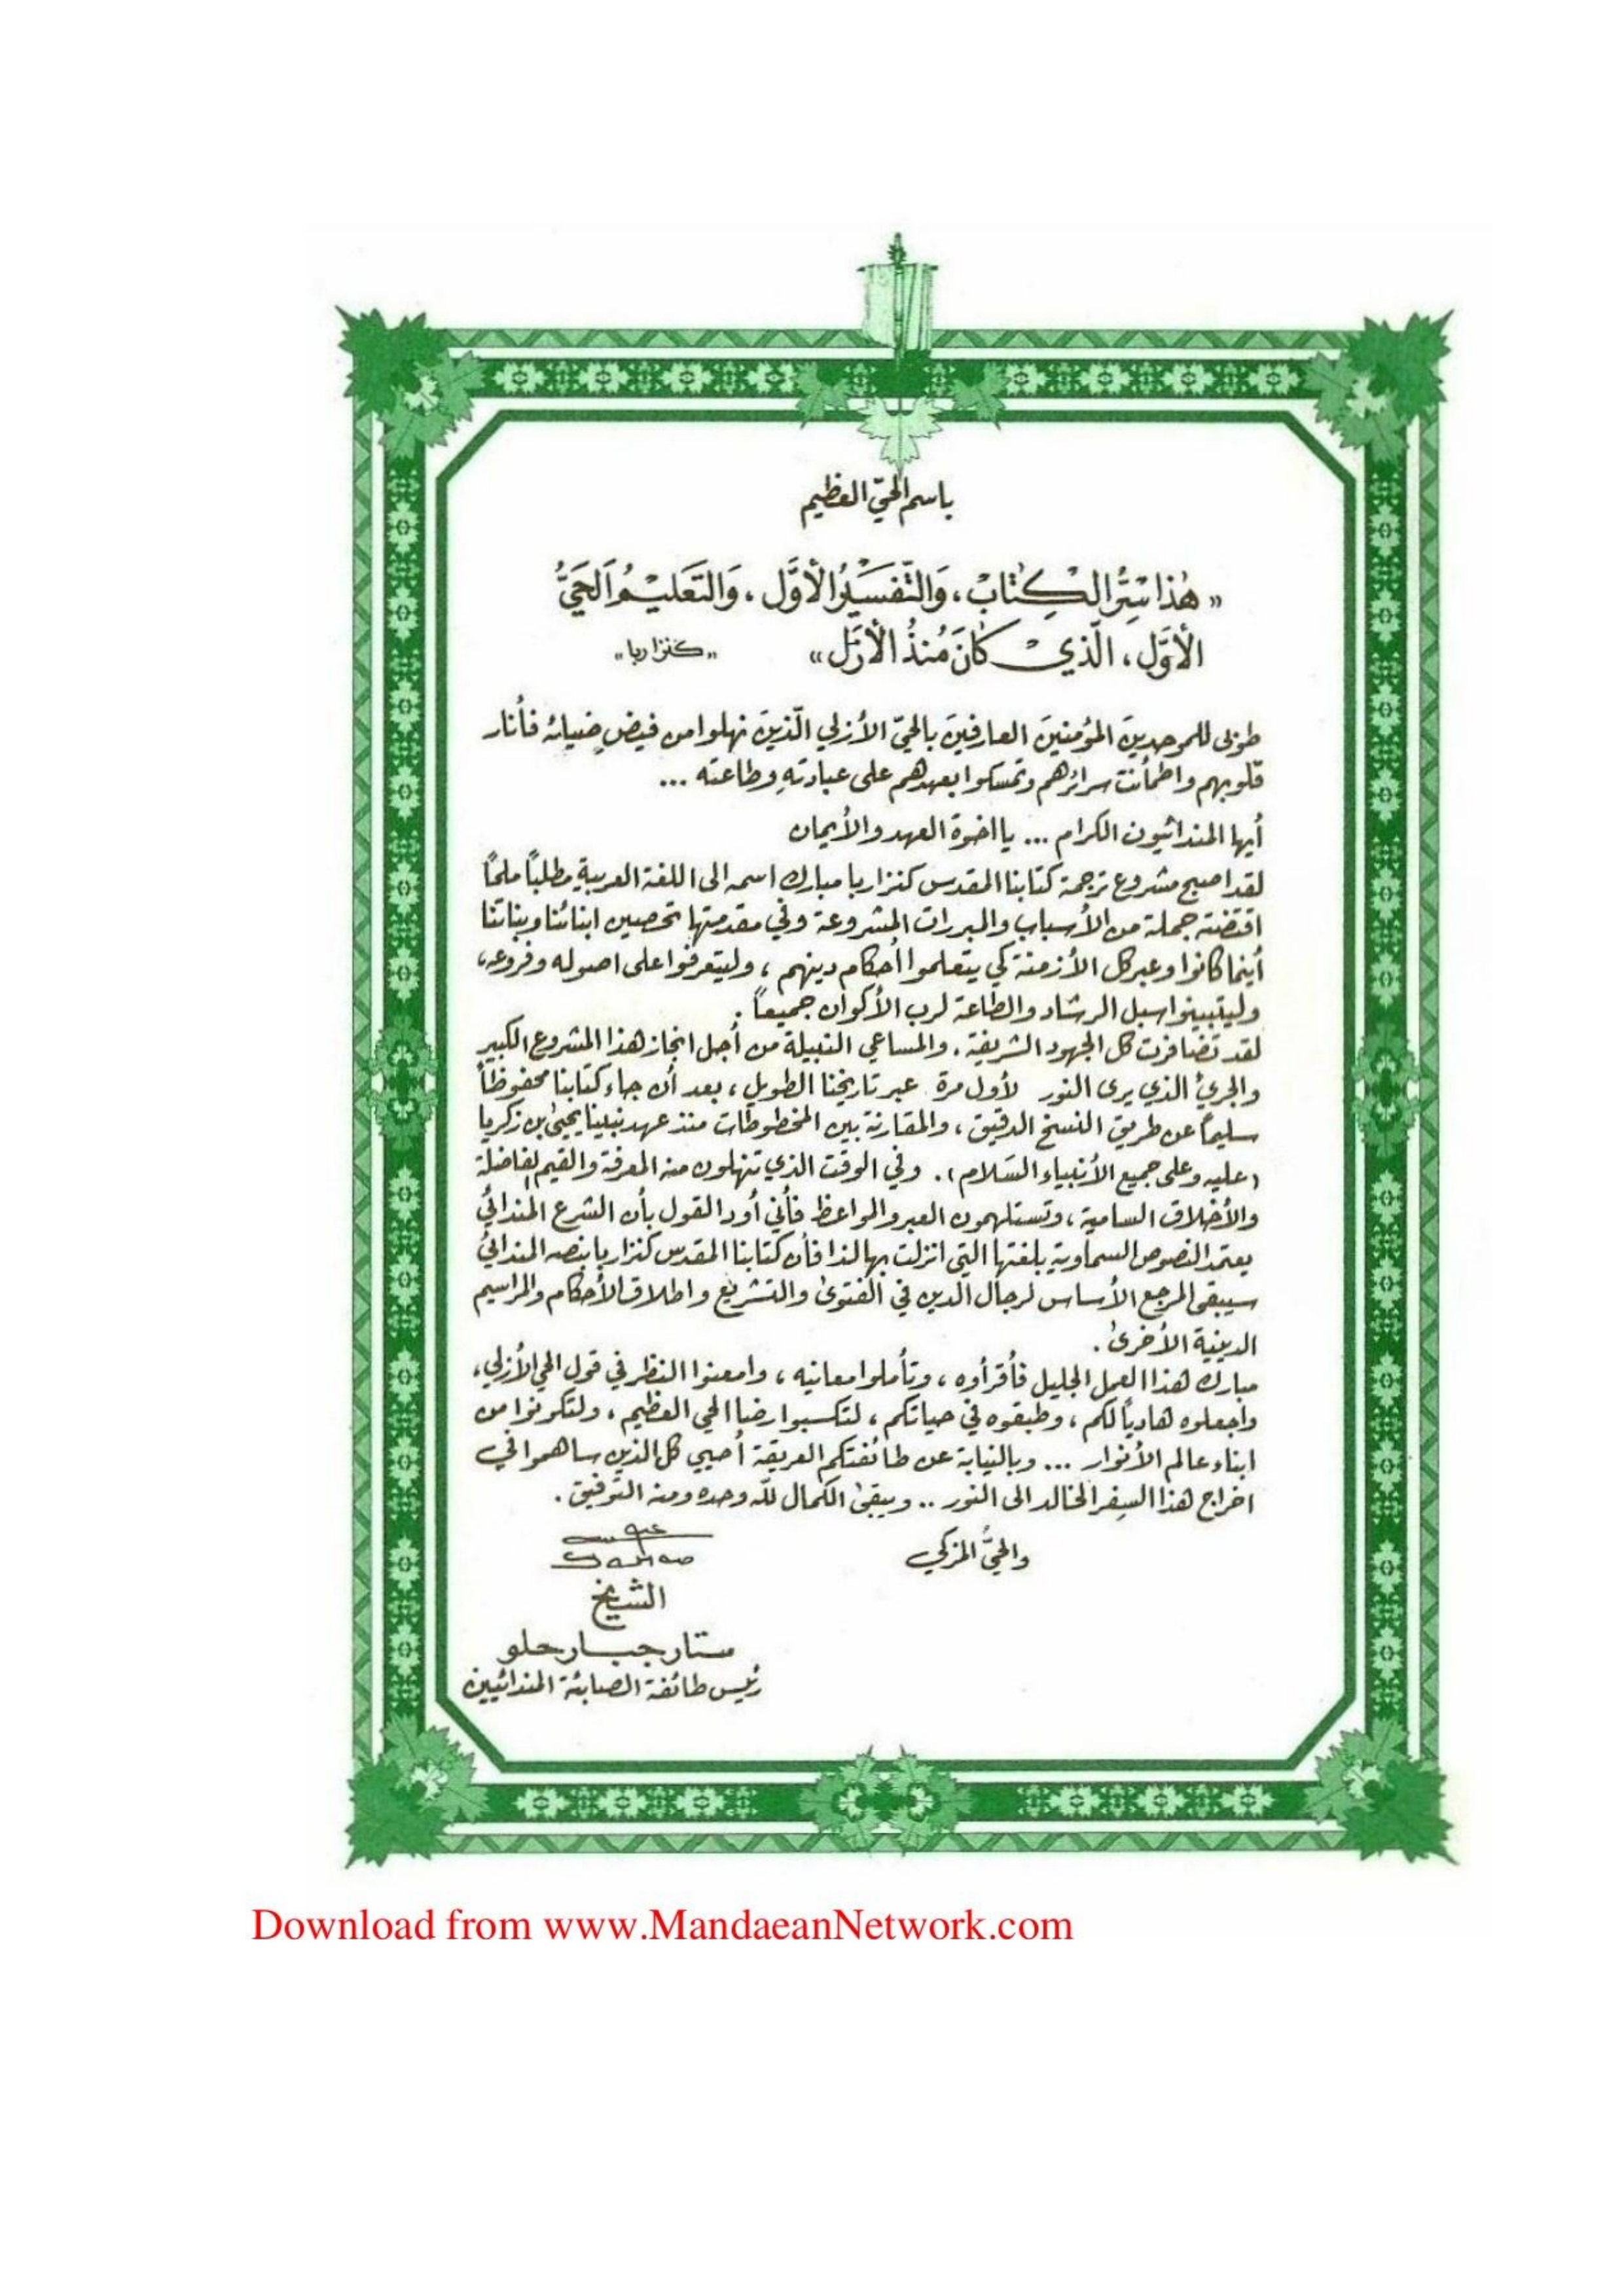 باسم الحيّ العظيم
«هٰذا سِرُّ الكِتَابْ، وَالتَّفسَيْرُ الأوَّل، وَالتَعَليْمُ اَلحَيَّ
الأوَّل، الّذيْ كَانَ مُنذُ الأزَل» «كنزا ربا»
طوبى للموحدينَ المؤمنينَ العارفينَ بالحيّ الأزلي الّذينَ نهلوا من فيضِ ضيائه فأنار
قلوبهم واطمأنت سرائرهم وتمسكوا بعهدهم على عبادتهِ وطاعته ...
أيها المندائيون الكرام ... يا اخوة العهد والأيمان
لقد اصبح مشروع ترجمة كتابنا المقدس كنزا ربا مبارك اسمه الى اللغة العربية مطلباً ملحاً
اقتضته جملة من الأسباب والمبررات المشروعة وفي مقدمتها تحصين ابنائنا وبناتنا
أينما كانوا وعبر كل الأزمنة كي يتعلموا أحكام دينهم، وليتعرفوا على اصوله وفروعه،
وليتبينوا سبل الرشاد والطاعة لرب الأكوان جميعاً.
لقد تضافرت كل الجهود الشريفة، والمساعي النبيلة من أجل انجاز هذا المشروع الكبير
والجريُ الذي يرى النور لأول مرة عبر تاريخنا الطويل، بعد أن جاء كتابنا محفوظاً
سليماً عن طريق النسخ الدقيق، والمقارنة بين المخطوطات منذ عهد نبينا يحيىٰ بن زكريا
(عليه وعلى جميع الأنبياء السَلام). وفي الوقت الذي تنهلون منه المعرفة والقيم الفاضلة
والأخلاق السامية، وتستلهمون العبر والمواعظ فأني أود القول بأن الشرع المندائيُ
يعتمد النصوص السماوية بلغتها التي انزلت بها لذا فأن كتابنا المقدس كنزا ربا بنصه المندائيُ
سيبقى المرجع الأساس لرجال الّدين في الفتوىٰ والتشريع واطلاق الأحكام والمراسيم
الدينية الأخرىٰ.
مبارك هذا العمل الجليل فأقرأوه، وتأملوا معانيه، وامعنوا النظر في قول الحي الأزلي،
واجعلوه هادياً لكم، وطبقوه في حياتكم، لتكسبوا رضا الحي العظيم، ولتكونوا من
ابناء عالم الأنوار ... وبالنيابة عن طائفتكم العريقة أحيي كل الذين ساهموا في
اخراج هذا السِفر الخالد الى النور .. ويبقىٰ الكمال للّه وحده ومنه التوفيق.
والحيُّ المزكي
الشيخ
ستار جبار حلو
رئيس طائفة الصابئة المندائيين
Download from www.MandaeanNetwork.com